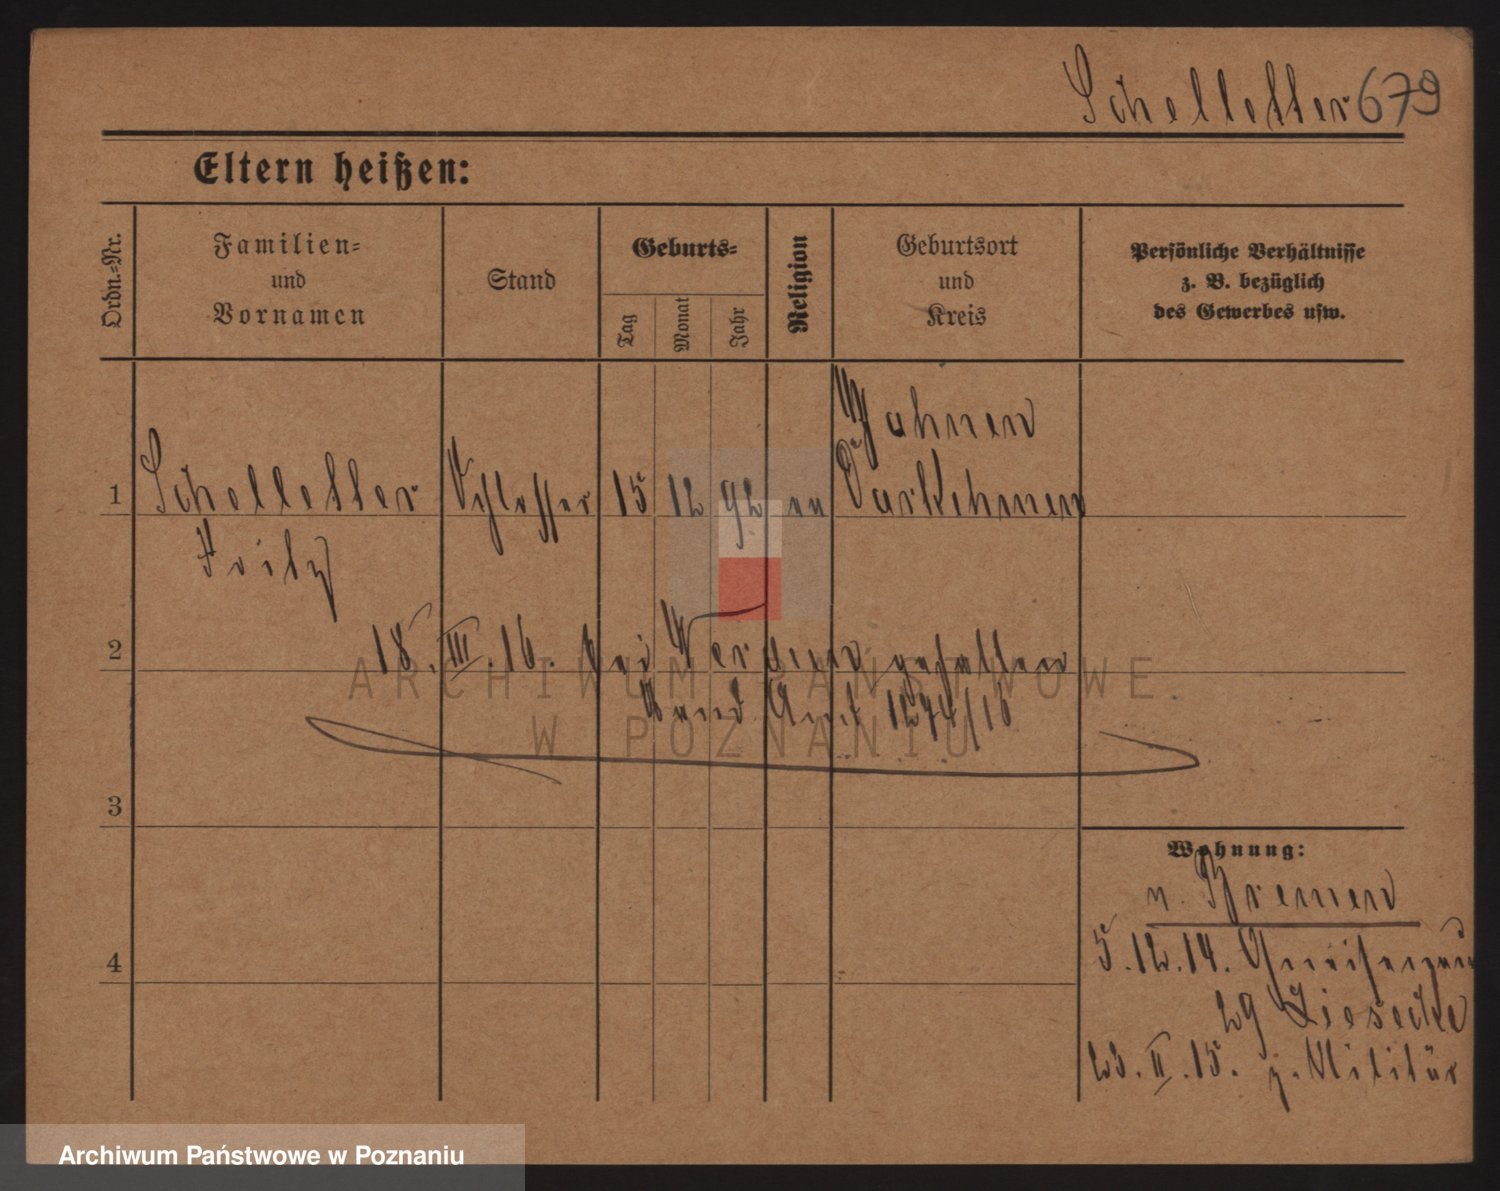 Schelletter 679
Eltern heißen:
Ordn.-Nr.
Familien-
und
Vornamen
Stand
Geburts-
Tag
Monat
Jahr
Religion
Geburtsort
und
Kreis
Persönliche Verhältnisse
z. B. bezüglich
des Gewerbes usw.
1 Schelletter Schlosser 15 12 92 ev Darkehmen
Fritz
2 18. III. 16. bei Verdun gefallen
1274/16
3
4
Wohnung:
v. Bremen
5. 12. 14.
29 Liesecke
23. II. 15. z. Militär
ARCHIWUM PAŃSTWOWE
W POZNANIU
Archiwum Państwowe w Poznaniu